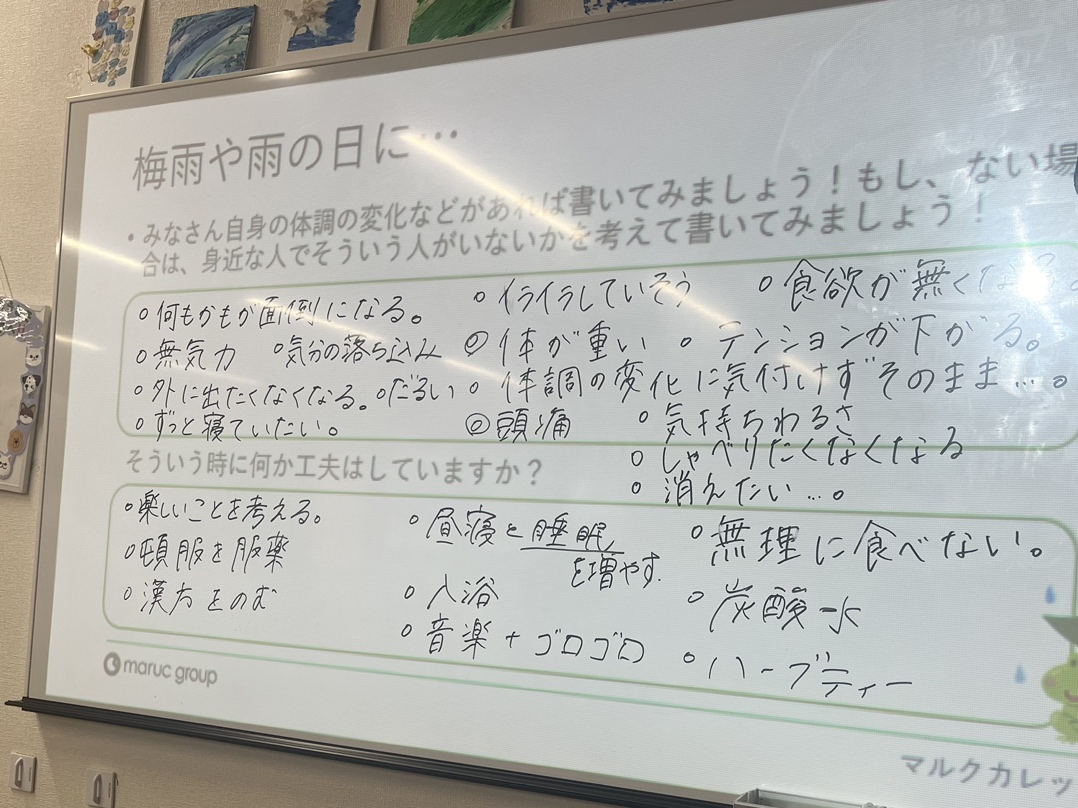 梅雨や雨の日に…
・みなさん自身の体調の変化などがあれば書いてみましょう！もし、ない場
合は、身近な人でそういう人がいないかを考えて書いてみましょう！
○何もかもが面倒になる。 ○イライラしていそう ○食欲が無くなる。
○無気力 ○気分の落ち込み ◎体が重い ○テンションが下がる。
○外に出たくなくなる。○だるい ○体調の変化に気付けずそのまま…。
○ずっと寝ていたい。 ◎頭痛 ○気持ちわるさ
○しゃべりたくなくなる
○消えたい…。
そういう時に何か工夫はしていますか？
○楽しいことを考える。 ○昼寝と睡眠を増やす. ○無理に食べない。
○頓服を服薬 ○入浴 ○炭酸水
○漢方をのむ ○音楽+ゴロゴロ ○ハーブティー
maruc group
マルクカレッ